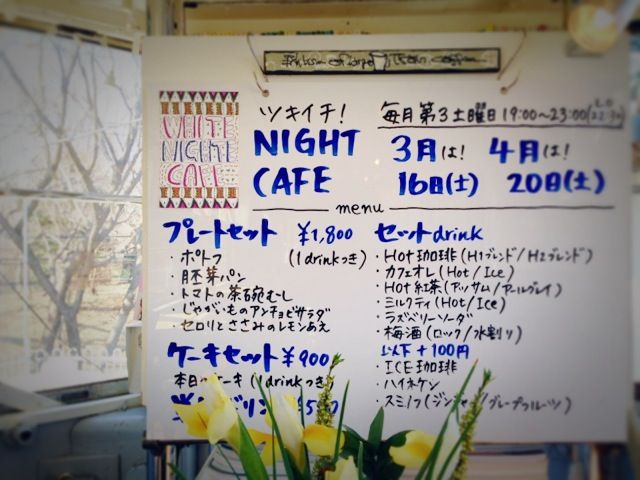 WHITE
NIGHT
CAFE
ツキイチ!
毎月第3土曜日19:00~23:00(L.O 22:30)
NIGHT
CAFE
3月は!
16日(土)
4月は!
20日(土)
menu
プレートセット ¥1,800
(1drinkつき)
・ポトフ
・胚芽パン
・トマトの茶碗むし
・じゃがいものアンチョビサラダ
・セロリとささみのレモンあえ
ケーキセット ¥900
本日のケーキ(1drinkつき
プリン ¥500
セットdrink
・Hot珈琲(H1ブレンド/H2ブレンド)
・カフェオレ(Hot/Ice)
・Hot紅茶(アッサム/アールグレイ)
・ミルクティ(Hot/Ice)
・ラズベリーソーダ
・梅酒(ロック/水割り)
以下+100円
・ICE珈琲
・ハイネケン
・スミノフ(ジンジャー/グレープフルーツ)